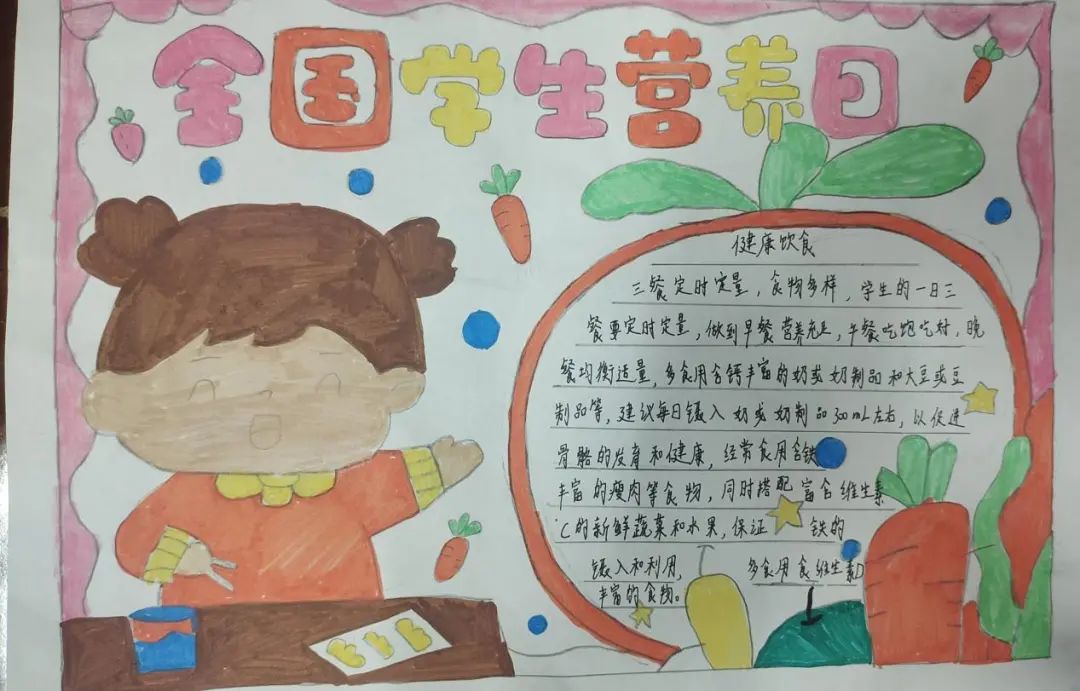 全国学生营养日
健康饮食
三餐定时定量，食物多样，学生的一日三
餐要定时定量，做到早餐营养充足，午餐吃饱吃好，晚
餐均衡适量，多食用含钙丰富的奶或奶制品和大豆或豆
制品等，建议每日镊入奶或奶制品300mL左右，以促进
骨骼的发育和健康，经常食用含铁
丰富的瘦肉等食物，同时搭配富含维生素
C的新鲜蔬菜和水果，保证铁的
镊入和利用，多食用食维生素D
丰富的食物。